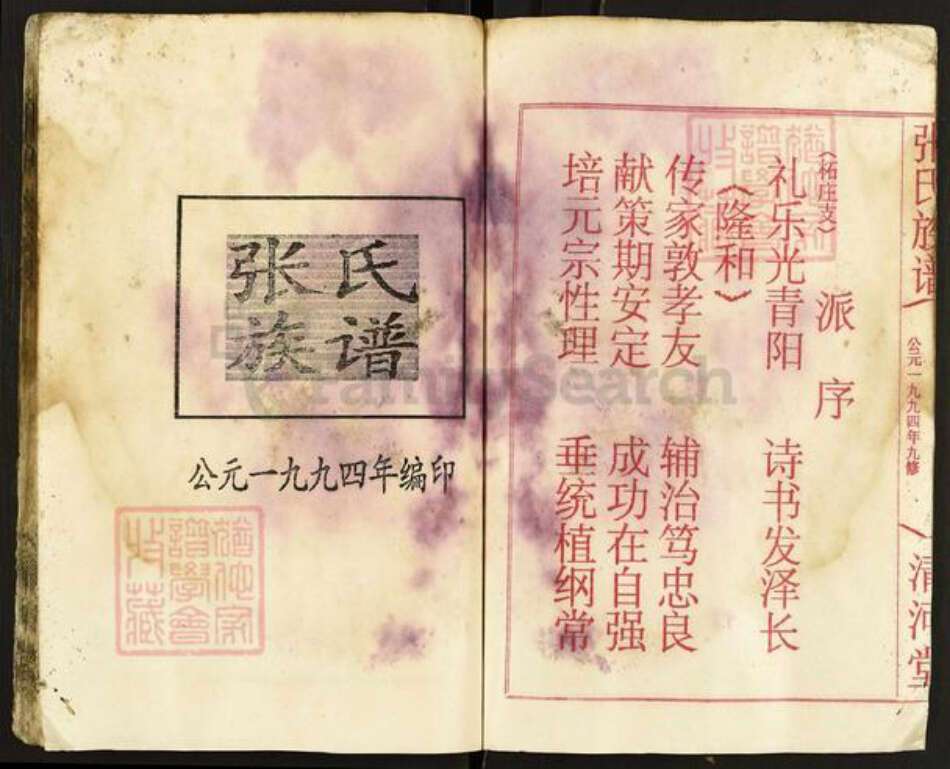 张氏
族谱
公元一九九四年编印
张氏族谱
公元一九九四年九修
清河堂
派序
（柘庄支）
礼乐光青阳 诗书发泽长
《隆和》
传家敦孝友 辅治笃忠良
献策期安定 成功在自强
培元宗性理 垂统植纲常
FamilySearch